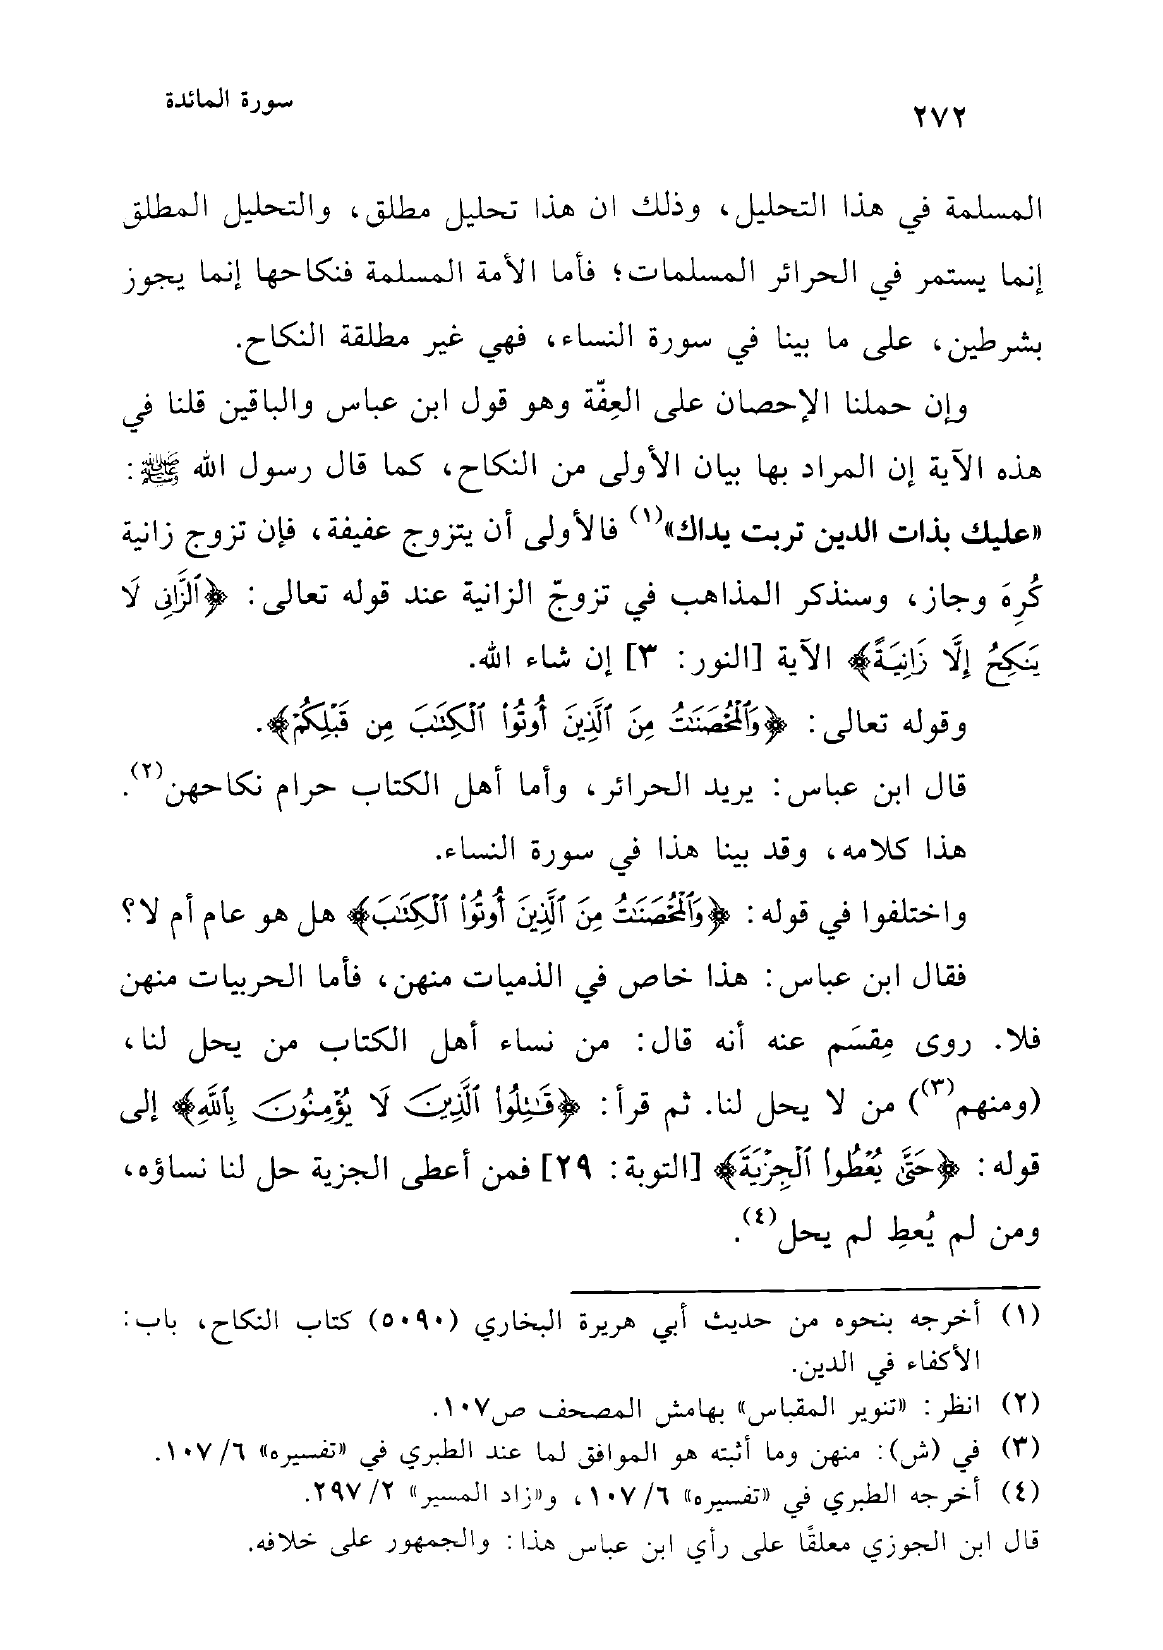 سورة المائدة
٢٧٢
المسلمة في هذا التحليل، وذلك ان هذا تحليل مطلق، والتحليل المطلق
إنما يستمر في الحرائر المسلمات؛ فأما الأمة المسلمة فنكاحها إنما يجوز
بشرطين، على ما بينا في سورة النساء، فهي غير مطلقة النكاح.
وإن حملنا الإحصان على العِفّة وهو قول ابن عباس والباقين قلنا في
هذه الآية إن المراد بها بيان الأولى من النكاح، كما قال رسول الله ﷺ:
«عليك بذات الدين تربت يداك»(١) فالأولى أن يتزوج عفيفة، فإن تزوج زانية
كُرِهَ وجاز، وسنذكر المذاهب في تزوجّ الزانية عند قوله تعالى: ﴿ٱلزَّانِى لَا
يَنكِحُ إِلَّا زَانِيَةً﴾ الآية [النور: ٣] إن شاء الله.
وقوله تعالى: ﴿وَٱلْمُحْصَنَٰتُ مِنَ ٱلَّذِينَ أُوتُوا۟ ٱلْكِتَٰبَ مِن قَبْلِكُمْ﴾.
قال ابن عباس: يريد الحرائر، وأما أهل الكتاب حرام نكاحهن(٢).
هذا كلامه، وقد بينا هذا في سورة النساء.
واختلفوا في قوله: ﴿وَٱلْمُحْصَنَٰتُ مِنَ ٱلَّذِينَ أُوتُوا۟ ٱلْكِتَٰبَ﴾ هل هو عام أم لا؟
فقال ابن عباس: هذا خاص في الذميات منهن، فأما الحربيات منهن
فلا. روى مِقسَم عنه أنه قال: من نساء أهل الكتاب من يحل لنا،
(ومنهم(٣)) من لا يحل لنا. ثم قرأ: ﴿قَٰتِلُوا۟ ٱلَّذِينَ لَا يُؤْمِنُونَ بِٱللَّهِ﴾ إلى
قوله: ﴿حَتَّىٰ يُعْطُوا۟ ٱلْجِزْيَةَ﴾ [التوبة: ٢٩] فمن أعطى الجزية حل لنا نساؤه،
ومن لم يُعطِ لم يحل(٤).
(١) أخرجه بنحوه من حديث أبي هريرة البخاري (٥٠٩٠) كتاب النكاح، باب:
الأكفاء في الدين.
(٢) انظر: «تنوير المقباس» بهامش المصحف ص١٠٧.
(٣) في (ش): منهن وما أثبته هو الموافق لما عند الطبري في «تفسيره» ٦/ ١٠٧.
(٤) أخرجه الطبري في «تفسيره» ٦/ ١٠٧، و«زاد المسير» ٢/ ٢٩٧.
قال ابن الجوزي معلقًا على رأي ابن عباس هذا: والجمهور على خلافه.